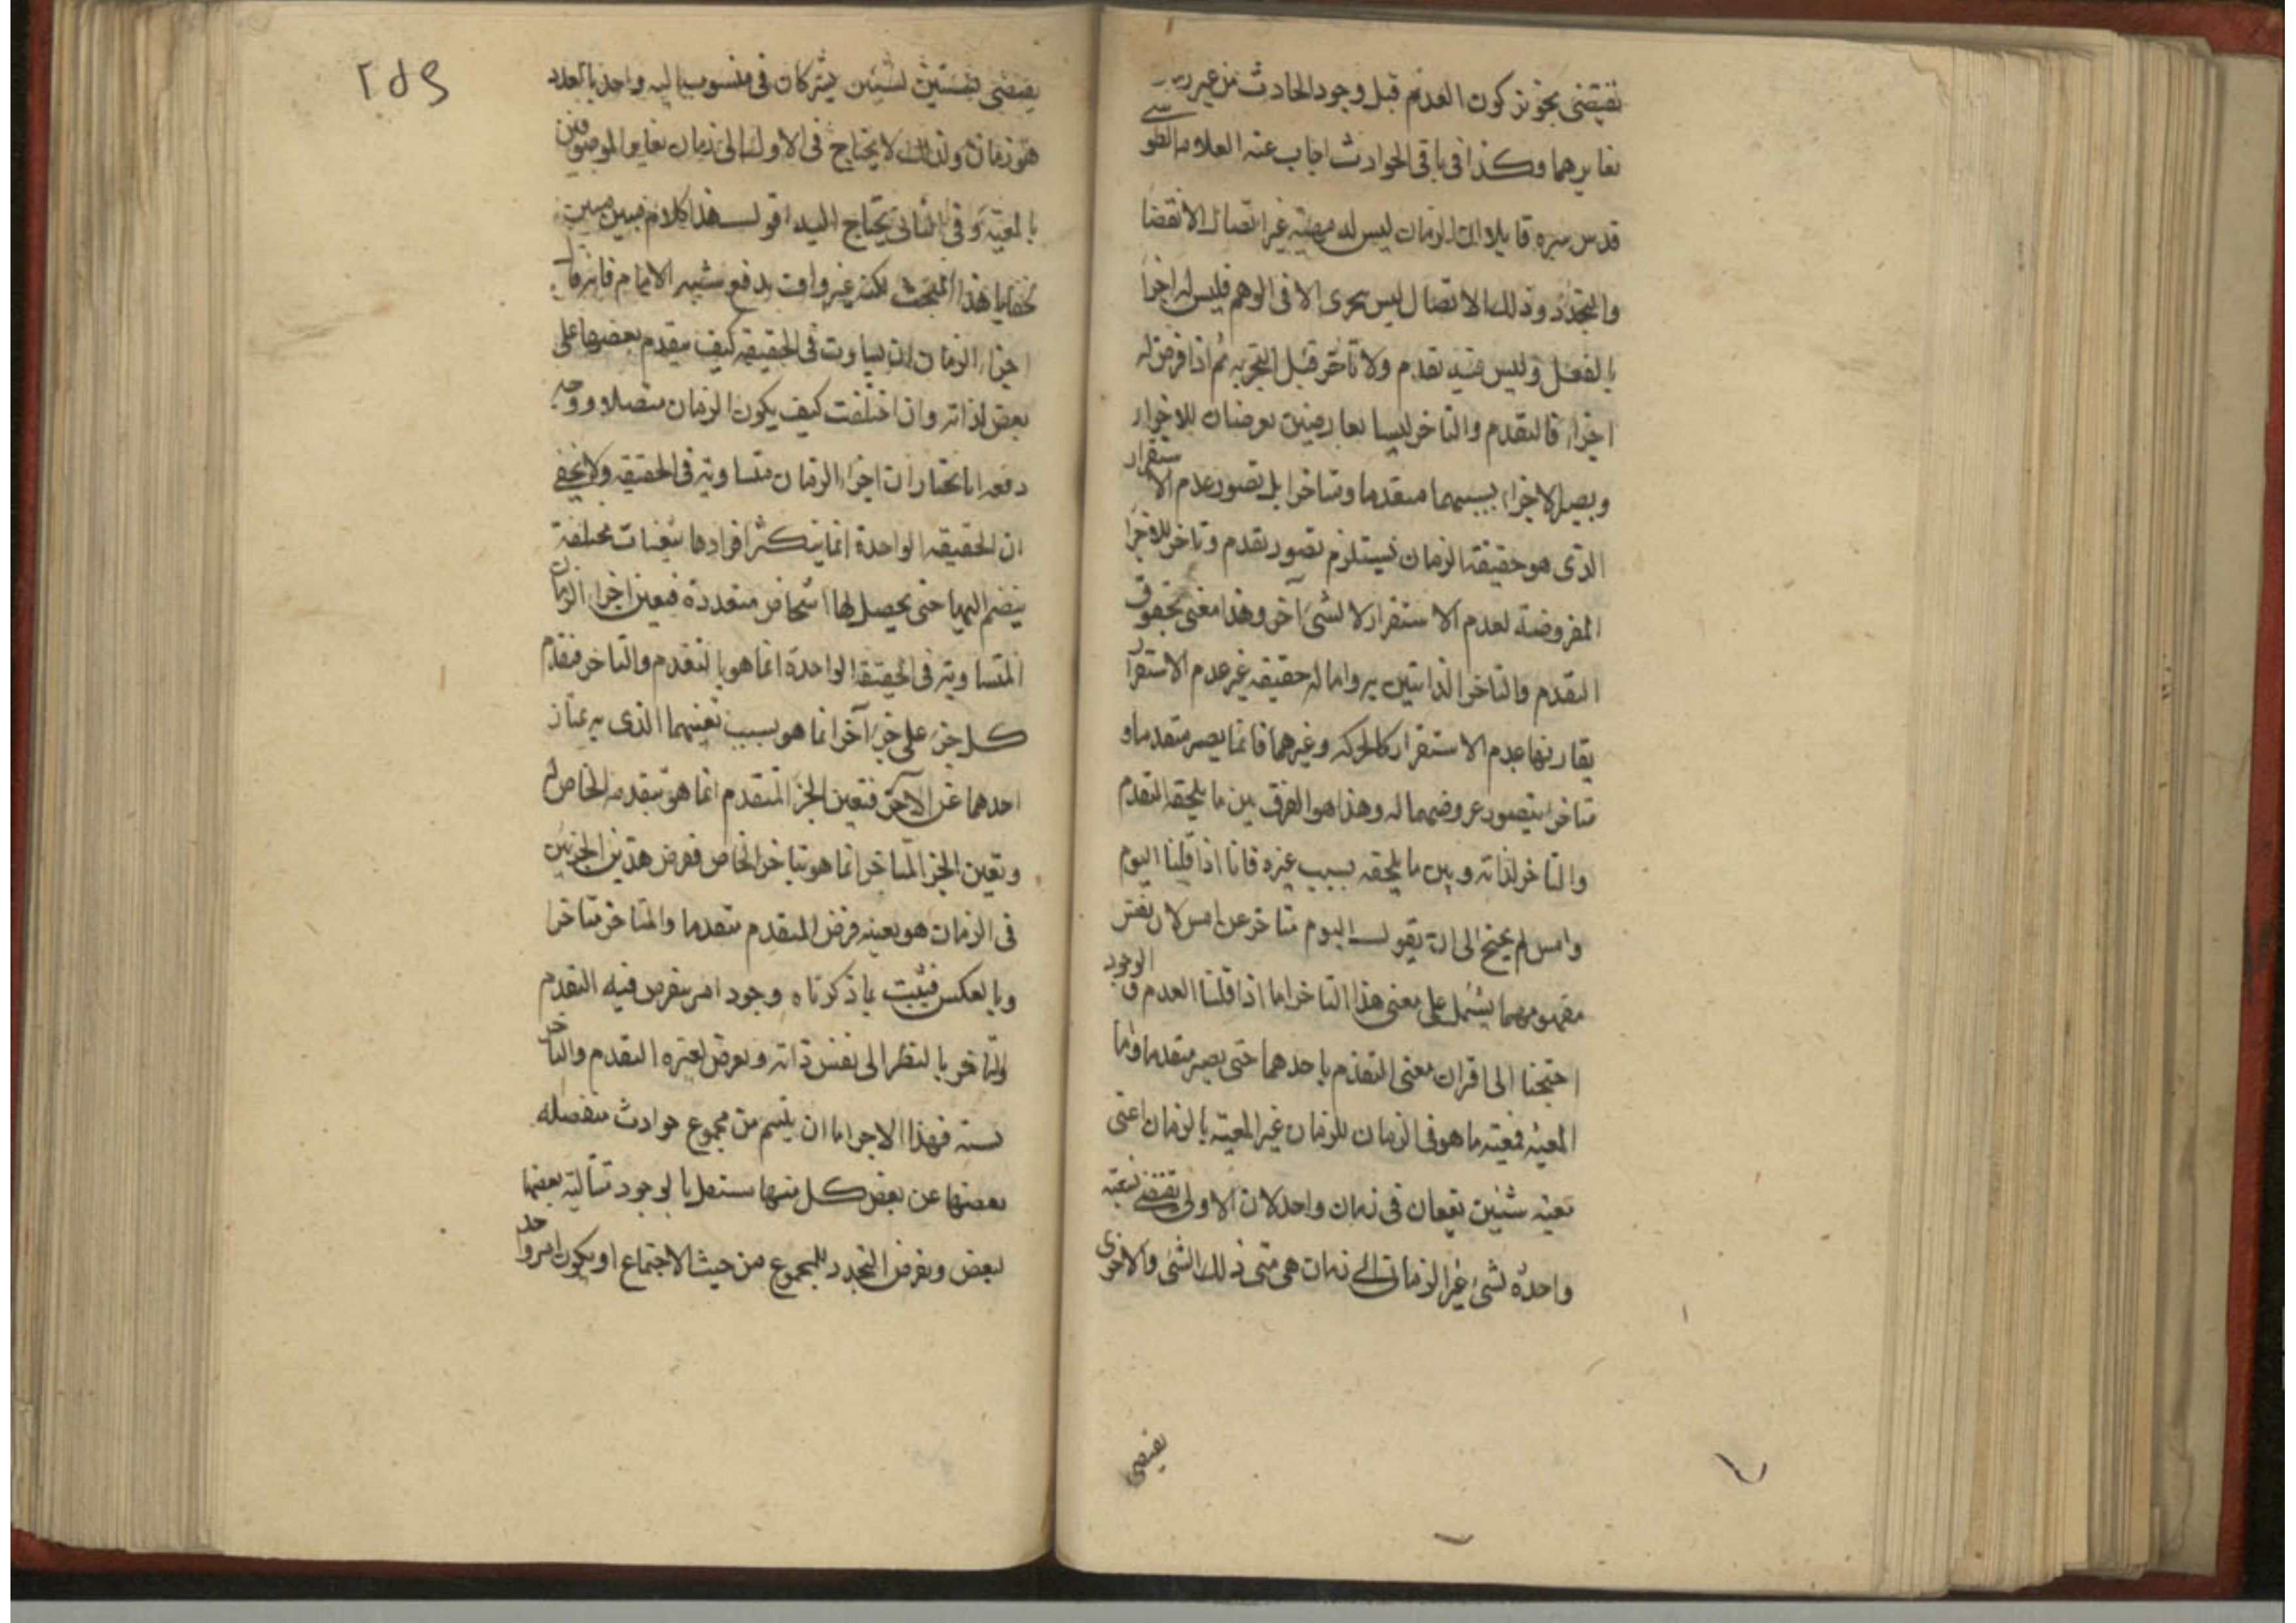 تقتضى تجويز كون العدم قبل وجود الحادث من غير
تغايرهما وكذا فى باقى الحوادث اجاب عنه العلامه الطوسى
قدس سره قايلا ان الزمان ليس له مهيته غير اتصال الانقضا
والتجدد وذلك الاتصال ليس يتجزى الا فى الوهم فليس له اجزا
بالفعل وليس فيه تقدم ولا تاخر قبل التجزيه ثم اذا فرض له
اجزاء فالتقدم والتاخر ليسا بعارضين يعرضان للاجزاء
ويصير الاجزاء بسببهما متقدما ومتاخرا بل تصور عدم الاستقرار
الذى هو حقيقة الزمان يستلزم تصور تقدم وتاخر للاجزا
المفروضة لعدم الاستقرار لا لشئ آخر وهذا معنى لحوق
التقدم والتاخر الذاتيين به واما له حقيقه غير عدم الاستقرار
يقارنها عدم الاستقرار كالحركه وغيرهما فانما يصير متقدما و
متاخرا بتصور عروضهما له وهذا هو الفرق بين ما يلحقه التقدم
والتاخر لذاته وبين ما يلحقه بسبب غيره فانا اذا قلنا اليوم
وامس لم يحتج الى ان يقول اليوم متاخر عن امس لان نفس
مفهومهما يشتمل على معنى هذا التاخر اما اذا قلنا العدم والوجود
احتجنا الى اقران معنى التقدم باحدهما حتى يصير متقدما واما
المعيه فمعيته ما هو فى الزمان للزمان غير المعيته بالزمان اعنى
معيه شيئين يقعان فى زمان واحد لان الاولى تقتضى نسبة
واحدة لشئ غير الزمان الى زمان هى متى ذلك الشئ والاخرى
يقتضى
٢٥٩
يقتضى نسبتين لشيئين يشتركان فى منسوب اليه واحد بالعدد
هو زمان ولذلك لا يحتاج فى الاولى الى زمان تغاير الموصوفين
بالمعيه وفى الثانى يحتاج اليه اقول هذا كلام مبين
لخفايا هذا المبحث لكنه غير واف بدفع شبه الامام فانه قال
اجزاء الزمان ان تساوت فى الحقيقه كيف يتقدم بعضها على
بعض لذاته وان اختلفت كيف يكون الزمان متصلا ووجه
دفعه انا نختار ان اجزاء الزمان متساويه فى الحقيقه ولا يخفى
ان الحقيقه الواحدة انما يتكثر افرادها بتعينات مختلفة
ينضم اليها حتى يحصل لها اشخاص متعددة فتعين اجزاء الزمان
المتساويه فى الحقيقة الواحدة انما هو بالتقدم والتاخر فتقدم
كل جزء على جزء آخر انما هو بسبب تعينهما الذى به يمتاز
احدهما عن الآخر فتعين الجزء المتقدم انما هو بتقدمه الخاص له
وتعين الجزء المتاخر انما هو بتاخر الخاص ففرض هذين الجزئين
فى الزمان هو بعينه فرض المتقدم متقدما والمتاخر متاخرا
وبالعكس فيثبت بما ذكرناه وجود امر يفرض فيه التقدم
والتاخر بالنظر الى نفس ذاته ويعرض لغيره التقدم والتاخر
فهذا الامر اما ان يلتئم من مجموع حوادث منفصله
بعضها عن بعض كل منها مستقل بالوجود متاليه بعضها
لبعض ويفرض التجدد للمجموع من حيث الاجتماع او يكون امر واحد